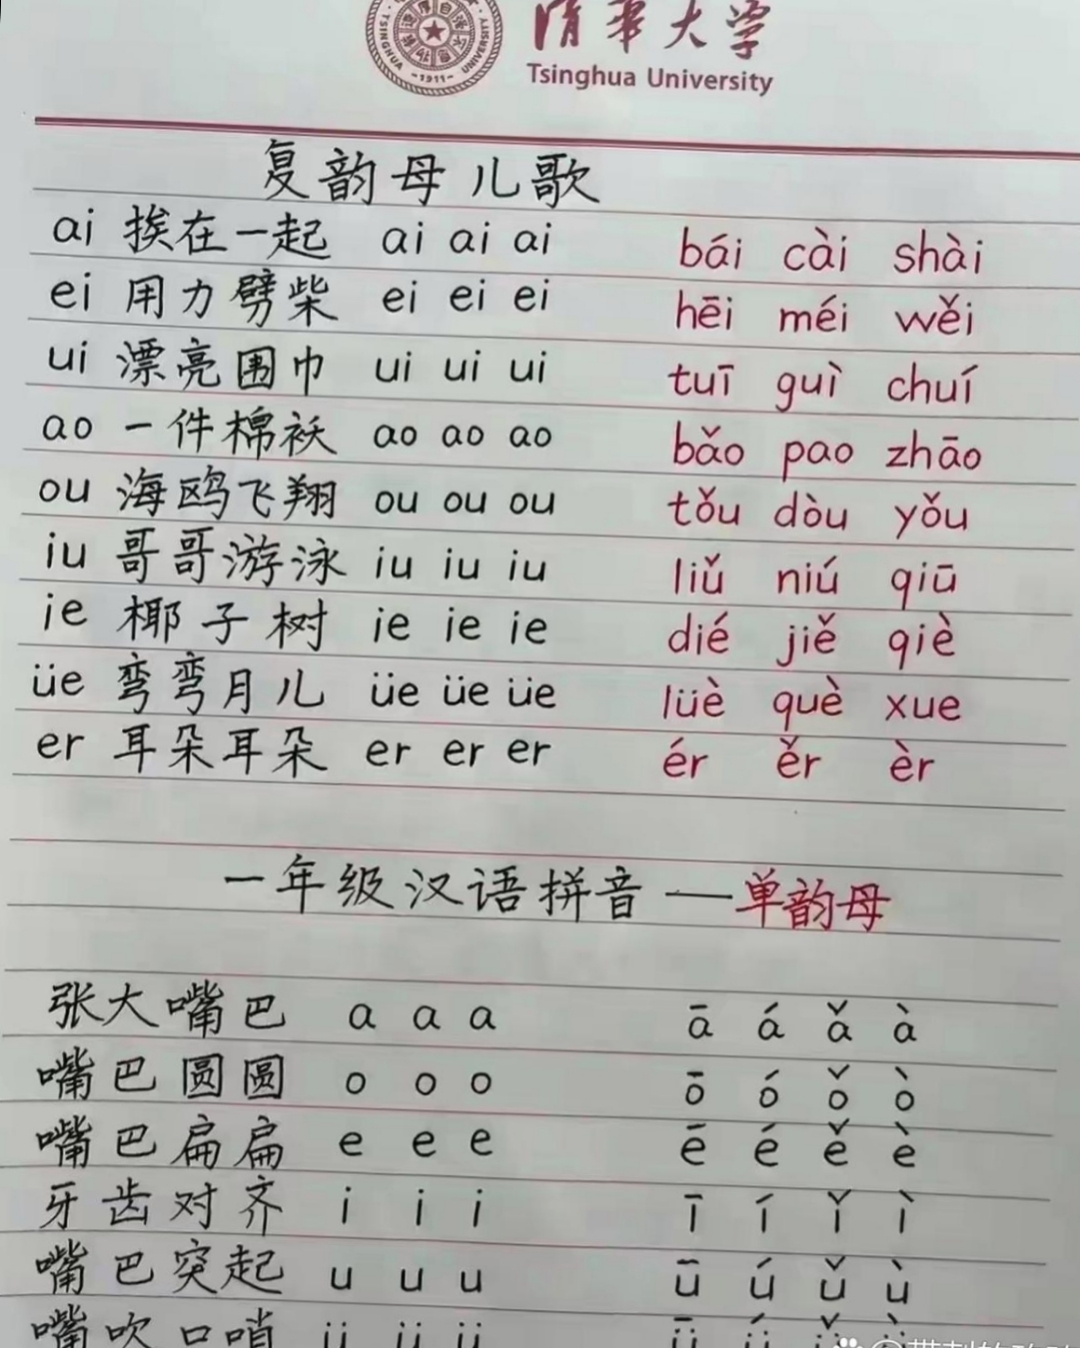 清华大学
TSINGHUA UNIVERSITY
-1911-
Tsinghua University
复韵母儿歌
ai 挨在一起 ai ai ai bái cài shài
ei 用力劈柴 ei ei ei hēi méi wěi
ui 漂亮围巾 ui ui ui tuī guì chuí
ao 一件棉袄 ao ao ao bǎo pao zhāo
ou 海鸥飞翔 ou ou ou tǒu dòu yǒu
iu 哥哥游泳 iu iu iu liǔ niú qiū
ie 椰子树 ie ie ie dié jiě qiè
üe 弯弯月儿 üe üe üe lüè què xue
er 耳朵耳朵 er er er ér ěr èr
一年级汉语拼音——单韵母
张大嘴巴 a a a ā á ǎ à
嘴巴圆圆 o o o ō ó ǒ ò
嘴巴扁扁 e e e ē é ě è
牙齿对齐 i i i ī í ǐ ì
嘴巴突起 u u u ū ú ǔ ù
嘴吹口哨 ü ü ü